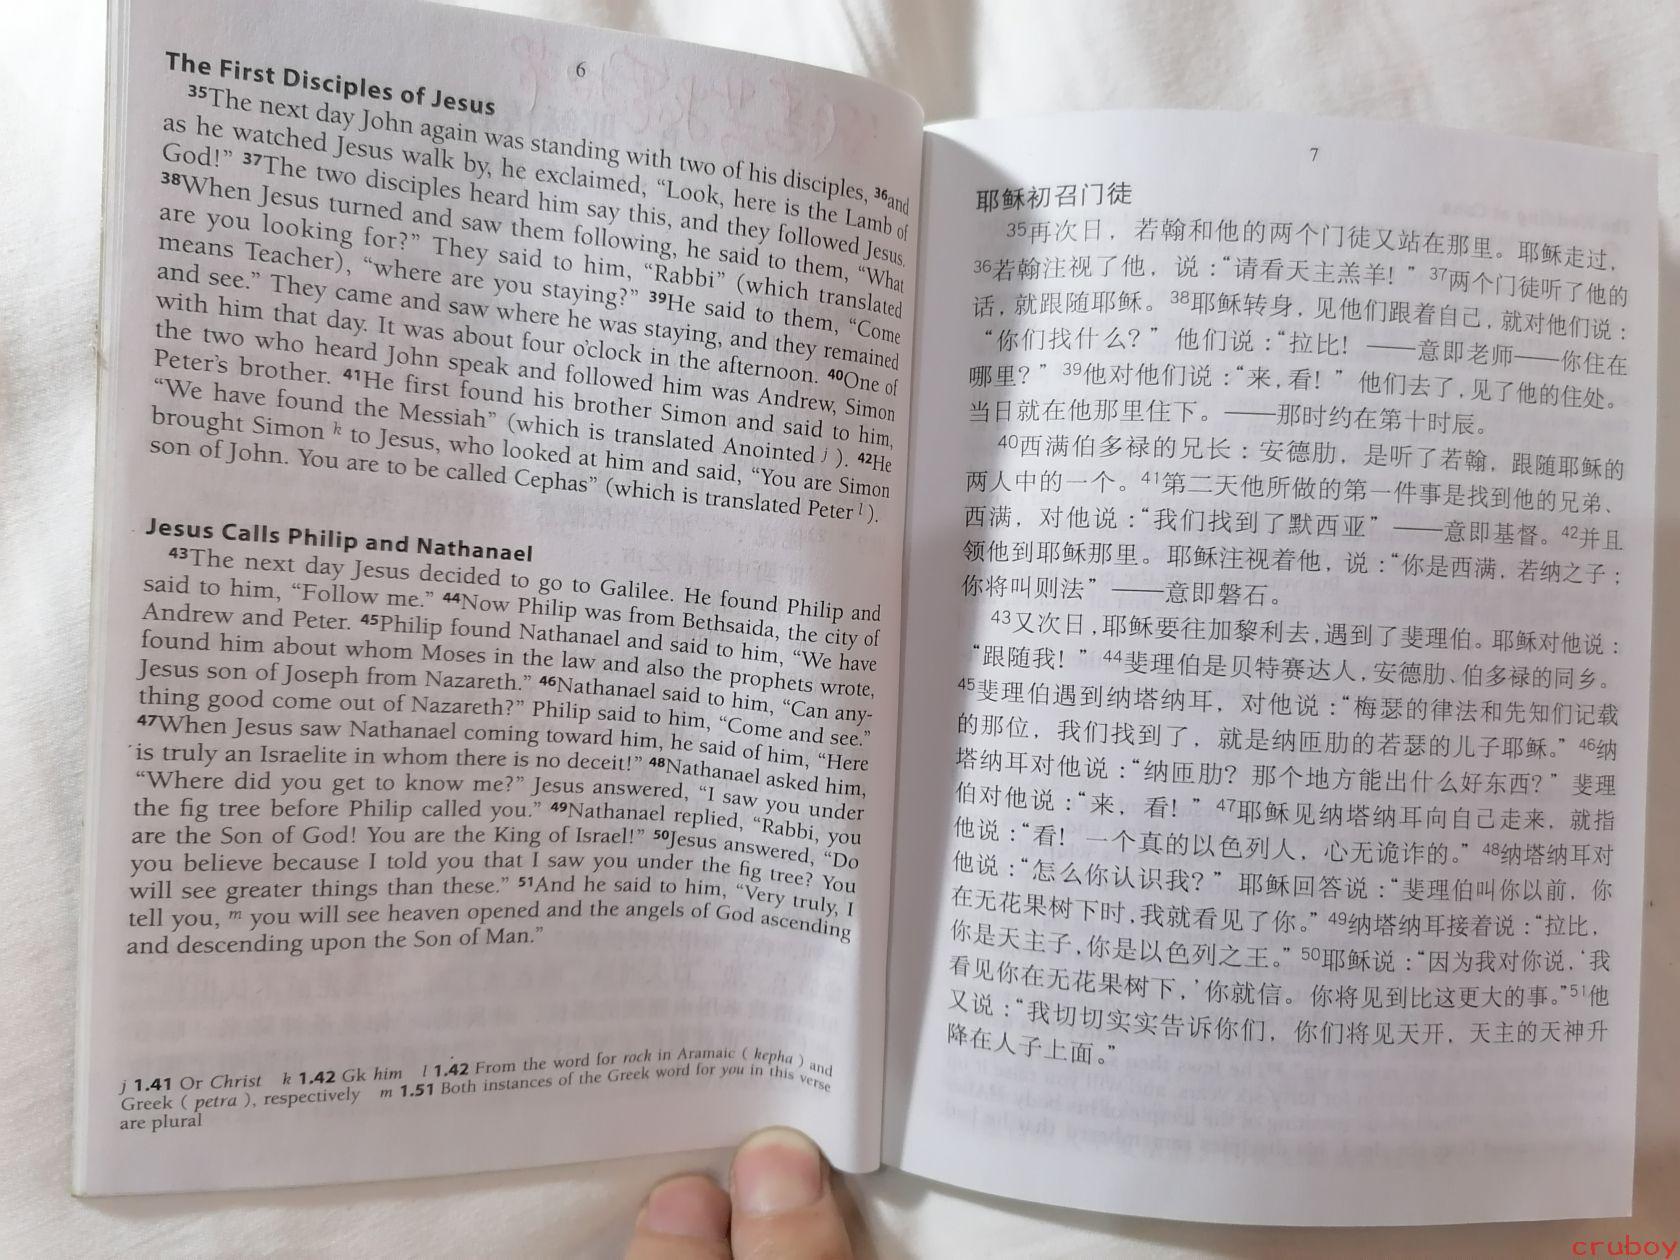 6
The First Disciples of Jesus
35The next day John again was standing with two of his disciples, 36and
as he watched Jesus walk by, he exclaimed, “Look, here is the Lamb of
God!” 37The two disciples heard him say this, and they followed Jesus.
38When Jesus turned and saw them following, he said to them, “What
are you looking for?” They said to him, “Rabbi” (which translated
means Teacher), “where are you staying?” 39He said to them, “Come
and see.” They came and saw where he was staying, and they remained
with him that day. It was about four o’clock in the afternoon. 40One of
the two who heard John speak and followed him was Andrew, Simon
Peter’s brother. 41He first found his brother Simon and said to him,
“We have found the Messiah” (which is translated Anointed j ). 42He
brought Simon k to Jesus, who looked at him and said, “You are Simon
son of John. You are to be called Cephas” (which is translated Peter l ).
Jesus Calls Philip and Nathanael
43The next day Jesus decided to go to Galilee. He found Philip and
said to him, “Follow me.” 44Now Philip was from Bethsaida, the city of
Andrew and Peter. 45Philip found Nathanael and said to him, “We have
found him about whom Moses in the law and also the prophets wrote,
Jesus son of Joseph from Nazareth.” 46Nathanael said to him, “Can any-
thing good come out of Nazareth?” Philip said to him, “Come and see.”
47When Jesus saw Nathanael coming toward him, he said of him, “Here
is truly an Israelite in whom there is no deceit!” 48Nathanael asked him,
“Where did you get to know me?” Jesus answered, “I saw you under
the fig tree before Philip called you.” 49Nathanael replied, “Rabbi, you
are the Son of God! You are the King of Israel!” 50Jesus answered, “Do
you believe because I told you that I saw you under the fig tree? You
will see greater things than these.” 51And he said to him, “Very truly, I
tell you, m you will see heaven opened and the angels of God ascending
and descending upon the Son of Man.”
j 1.41 Or Christ k 1.42 Gk him l 1.42 From the word for rock in Aramaic ( kepha ) and
Greek ( petra ), respectively m 1.51 Both instances of the Greek word for you in this verse
are plural
7
耶稣初召门徒
35再次日，若翰和他的两个门徒又站在那里。耶稣走过，
36若翰注视了他，说：“请看天主羔羊！” 37两个门徒听了他的
话，就跟随耶稣。38耶稣转身，见他们跟着自己，就对他们说：
“你们找什么？” 他们说：“拉比！——意即老师——你住在
哪里？” 39他对他们说：“来，看！” 他们去了，见了他的住处。
当日就在他那里住下。——那时约在第十时辰。
40西满伯多禄的兄长：安德肋，是听了若翰，跟随耶稣的
两人中的一个。41第二天他所做的第一件事是找到他的兄弟、
西满，对他说：“我们找到了默西亚” ——意即基督。42并且
领他到耶稣那里。耶稣注视着他，说：“你是西满，若纳之子；
你将叫则法” ——意即磐石。
43又次日，耶稣要往加黎利去，遇到了斐理伯。耶稣对他说：
“跟随我！” 44斐理伯是贝特赛达人，安德肋、伯多禄的同乡。
45斐理伯遇到纳塔纳耳，对他说：“梅瑟的律法和先知们记载
的那位，我们找到了，就是纳匝肋的若瑟的儿子耶稣。” 46纳
塔纳耳对他说：“纳匝肋？那个地方能出什么好东西？” 斐理
伯对他说：“来，看！” 47耶稣见纳塔纳耳向自己走来，就指
他说：“看！一个真的以色列人，心无诡诈的。” 48纳塔纳耳对
他说：“怎么你认识我？” 耶稣回答说：“斐理伯叫你以前，你
在无花果树下时，我就看见了你。” 49纳塔纳耳接着说：“拉比，
你是天主子，你是以色列之王。” 50耶稣说：“因为我对你说，‘我
看见你在无花果树下，’你就信。你将见到比这更大的事。”51他
又说：“我切切实实告诉你们，你们将见天开，天主的天神升
降在人子上面。”
cruboy